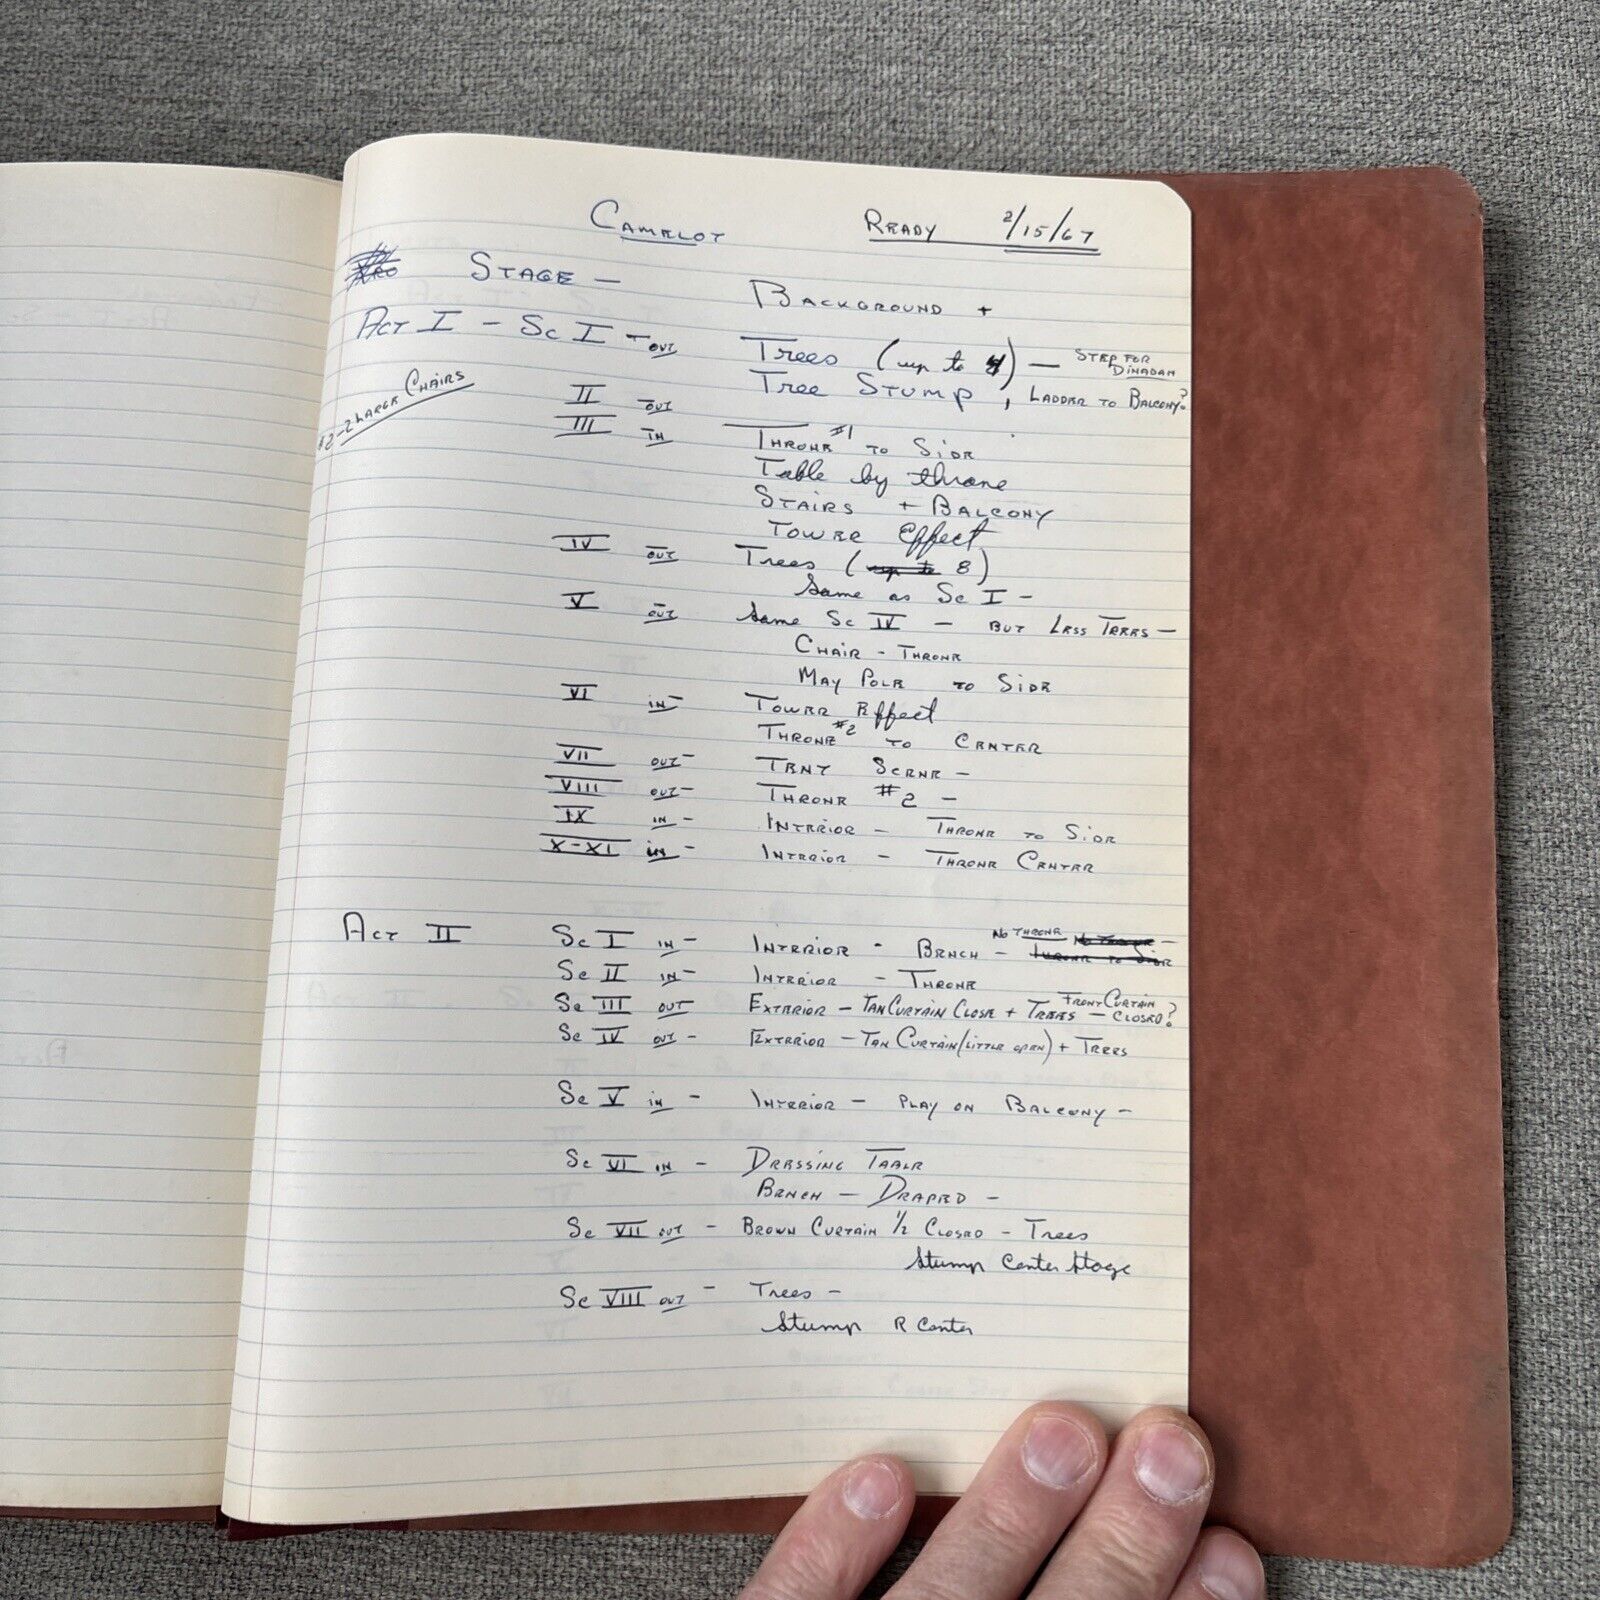 Camelot Ready 2/15/67
Stage —
Background +
Act I - Sc I - out Trees (up to 4) — Step for Dinadan
#2-2 Large Chairs
II out Tree Stump, Ladder to Balcony?
III in Throne #1 to Side
Table by throne
Stairs + Balcony
Tower Effect
IV out Trees (up to 8)
Same as Sc I -
V out Same Sc IV - but Less Trees -
Chair - Throne
May Pole to Side
VI in - Tower Effect
Throne #2 to Center
VII out - Tent Scene -
VIII out - Throne #2 -
IX in - Interior - Throne to Side
X-XI in - Interior - Throne Center
Act II Sc I in - Interior - Bench - No Throne No Throne - Throne to Side
Sc II in - Interior - Throne
Sc III out Exterior - Tan Curtain Close + Trees - Front Curtain Closed?
Sc IV out - Exterior - Tan Curtain (little open) + Trees
Sc V in - Interior - Play on Balcony -
Sc VI in - Dressing Table
Bench - Draped -
Sc VII out - Brown Curtain 1/2 Closed - Trees
Stump Center Stage
Sc VIII out - Trees -
Stump R Center